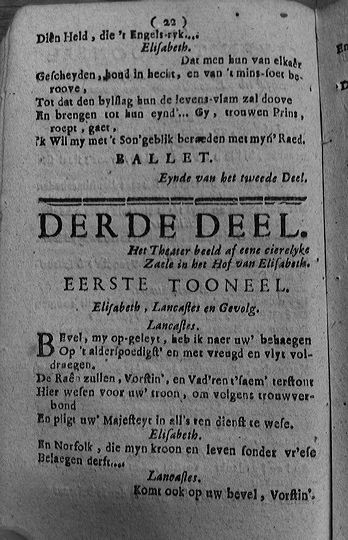 ( 22 )
Diên Held, die 't Engels-ryk...:
Elisabeth.
Dat men hun van elkaêr
Gescheyden, houd in hecht, en van 't mins-soet be-
roove,
Tot dat den bylslag hun de levens-vlam zal doove
En brengen tot hun eynd'... Gy, trouwen Prins,
roept, gaet,
'k Wil my met 't Son'geblik beraeden met myn' Raed.
BALLET.
Eynde van het tweede Deel.
DERDE DEEL.
Het Theater beeld af eene cierelyke
Zaele in het Hof van Elisabeth.
EERSTE TOONEEL.
Elisabeth, Lancastes en Gevolg.
Lancastes.
BEvel, my op-geleyt, heb ik naer uw' behaegen
Op 't alderspoedigst' en met vreugd en vlyt vol-
draegen.
De Raên zullen, Vorstin', en Vad'ren t'saem' terstont
Hier wesen voor uw' troon, om volgens trouwver-
bond
En pligt uw' Majesteyt in all's ten dienst te wese.
Elisabeth.
En Norfolk, die myn kroon en leven sonder vr'ese
Belaegen derft....
Lancastes.
Komt ook op uw bevel, Vorstin'.